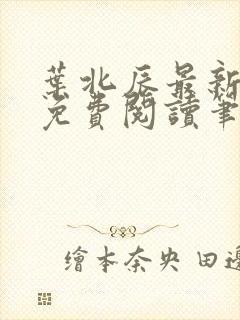 葉北辰最新
免費閱讀筆
繪本奈央 田邊